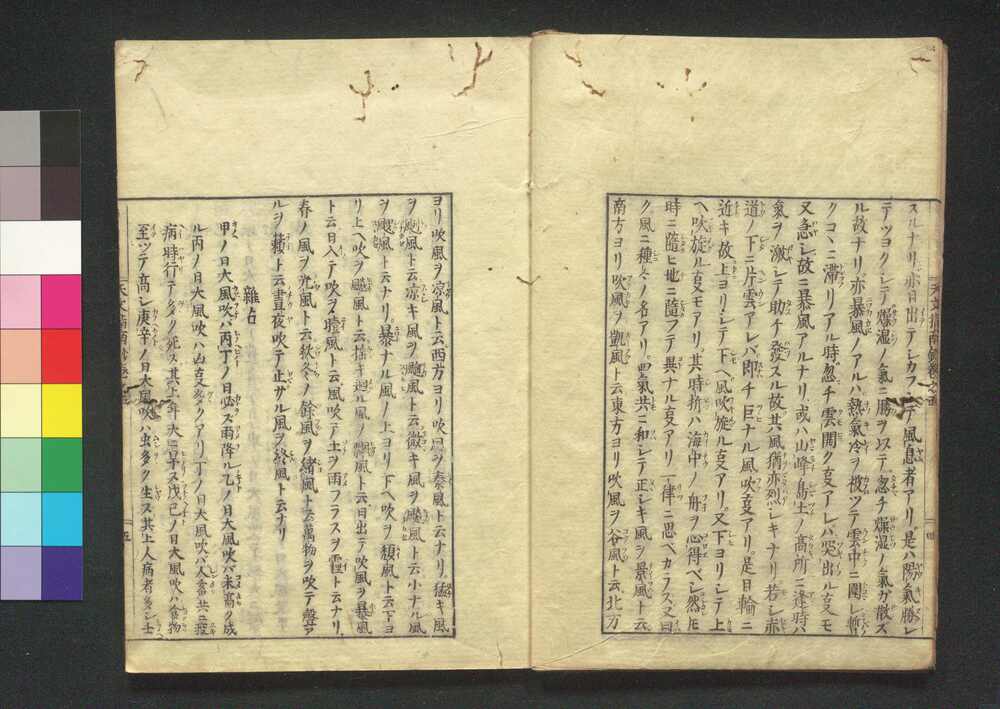 スルナリ亦日出テシカラ テ風息者アリ是ハ陽氣勝レ
テツヨクシテ燥湿ノ氣ニ勝ヲ以テ忽チ燥湿ノ氣ガ散ズ
ル故ナリ亦暴風ノアルハ熱氣冷ヲ被ツテ雲中ニ閉レ暫
クコヽニ滞リアル時忽チ雲開ク叓アレバ突出ル叓モ
又急シ故ニ暴風アルナリ或ハ山峰島土ノ高所ニ逢時ハ
氣ヲ激シテ助チ發スル故其風猶亦烈シキナリ若シ赤
道ノ下ニ片雲アレバ即チ巨ナル風吹叓アリ是日輪ニ
近キ故上ヨリシテ下ヘ風吹旋ル叓アリ又下ヨリシテ上
ヘ吹旋ル叓モアリ其時折ハ海中ノ舟ヲ心得ベシ然ㇳモ
時ニ隨ヒ地ニ隨フテ異ナル叓アリ一律ニ思ベカラス又曰
ク風ニ種々ノ名アリ四氣共ニ和シテ正シキ風ヲ景風ト云
南方ヨリ吹風ヲ凱風ト云東方ヨリ吹風ヲ谷風ト云北方
ヨリ吹風ヲ凉風ト云西方ヨリ吹風ヲ泰風ト云ナリ猛キ風
ヲ颲風ト云凉キ風ヲ 風ト云微キ風ヲ飈風ト云小ナル風
ヲ颸風ト云ナリ暴ナル風ノ上ヨリ下ヘ吹ヲ頽風ト云下ヨ
リ上ヘ吹ヲ飈風ト云揺キ廻ル風ノ 風ト云日出テ吹風ヲ暴風
ト云日入テ吹ヲ曀風ト云風吹テ土ヲ雨フラスヲ霾ト云ナリ
春ノ風ヲ光風ト云秋冬ノ餘風ヲ緒風ト云萬物ヲ吹テ聲ア
ルヲ籟ト云晝夜吹テ止サル風ヲ終風ト云ナリ
雜占
甲ノ日大風吹バ丙丁ノ日必ズ雨降ル乙ノ日大風吹バ米高ク成
ル丙ノ日大風吹ハ凶叓多クアリ丁ノ日大風吹バ人畜共ニ
病時行テ多ク死ス其上年大ニ旱ス戊己ノ日大風吹ハ食物
至ツテ高シ庚辛ノ日大風吹ハ虫多ク生ス其上人病者多シ士
四
五